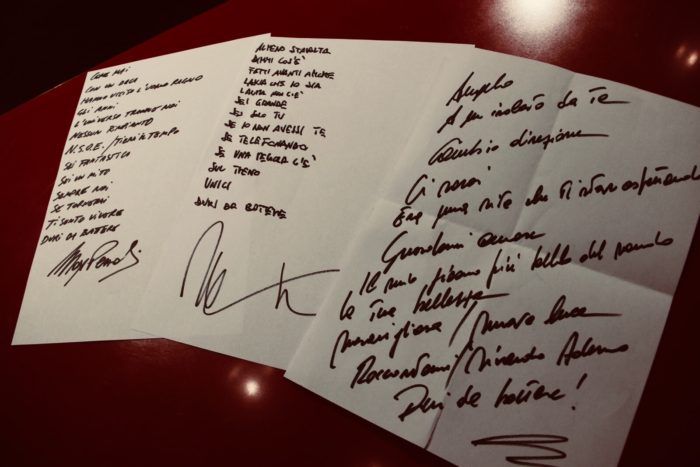 COME MAI
CON UN DECA
HANNO UCCISO L'UOMO RAGNO
GLI ANNI
L'UNIVERSO TRANNE NOI
NESSUN RIMPIANTO
N.S.O.E. / TIENI IL TEMPO
SEI FANTASTICA
SEI UN MITO
SEMPRE NOI
SE TORNERAI
TI SENTO VIVERE
DURI DA BATTERE
Max Pezzali
ALMENO STAVOLTA
DIMMI COS'È
FATTI AVANTI AMORE
LASCIA CHE IO SIA
LAURA NON C'È
SEI GRANDE
SEI SOLO TU
SE IO NON AVESSI TE
SE TELEFONANDO
SE UNA REGOLA C'È
SUL TRENO
UNICI
DURI DA BATTERE
Angelo
A un isolato da Te
Cambio direzione
Ci sarai
Era una vita che ti stavo aspettando
Guardami amore
Il mio giorno più bello del mondo
La Tua bellezza
Meravigliosa / Nuova luce
Raccontami / Vivendo Adesso
Duri da battere!